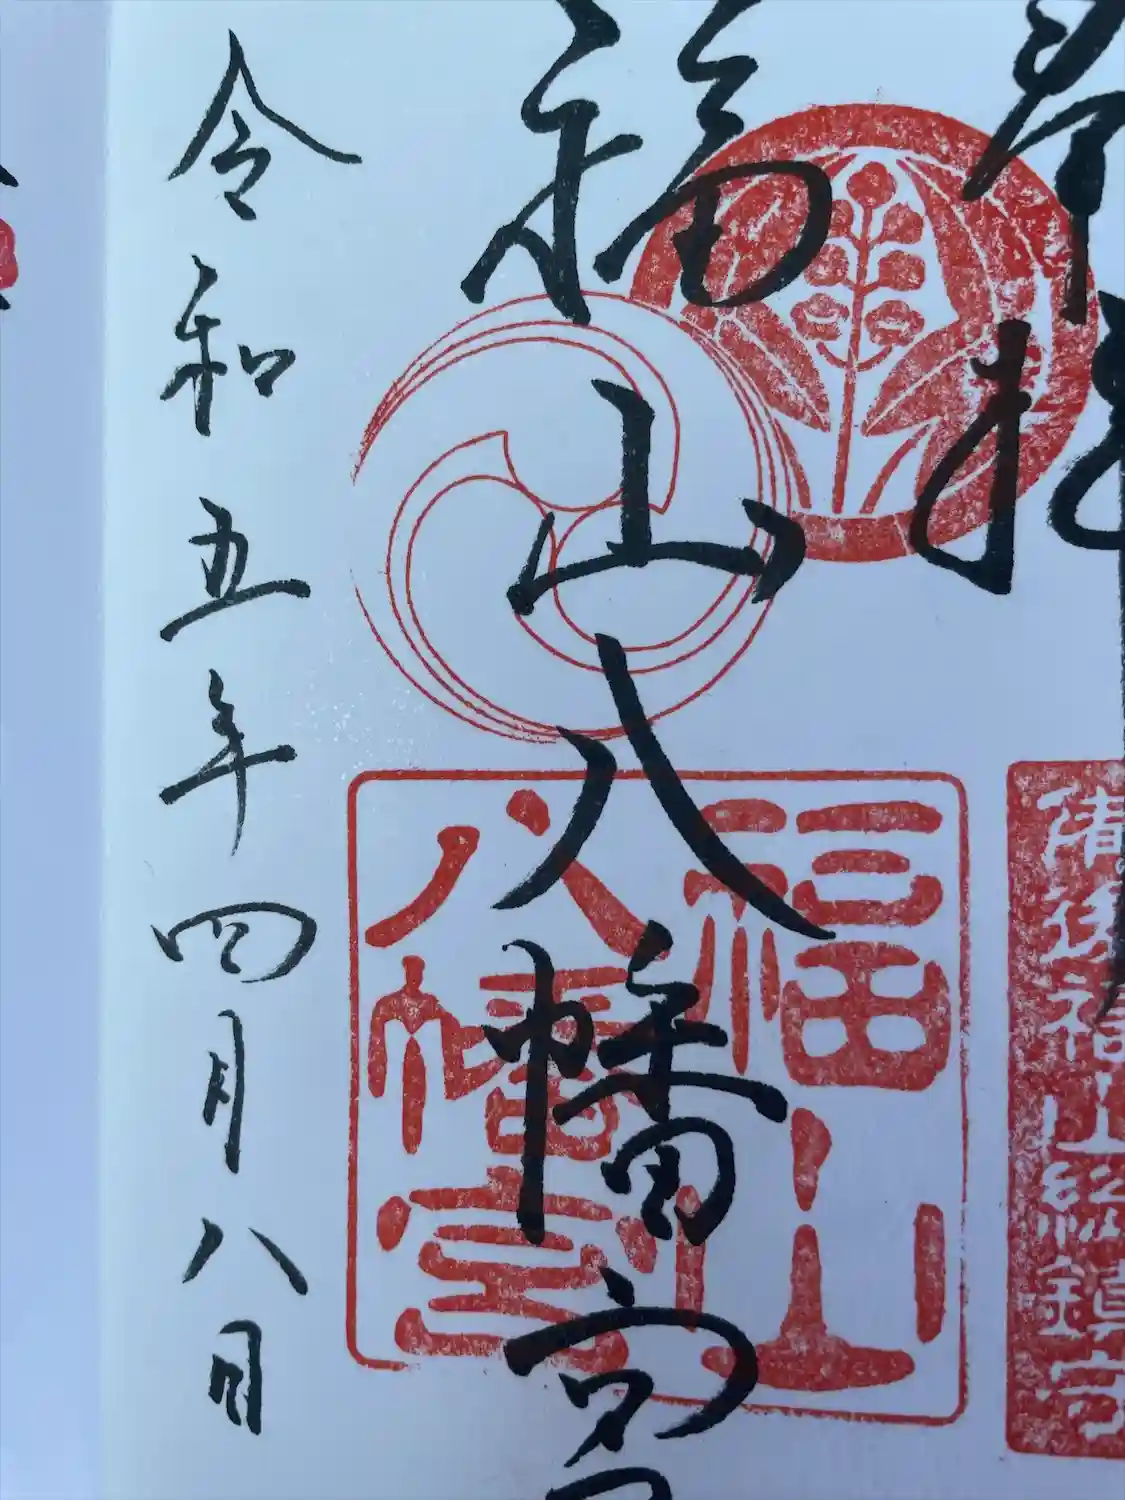 奉拝
福山八幡宮
令和五年四月八日
備後福山総鎮守
福山
八幡宮